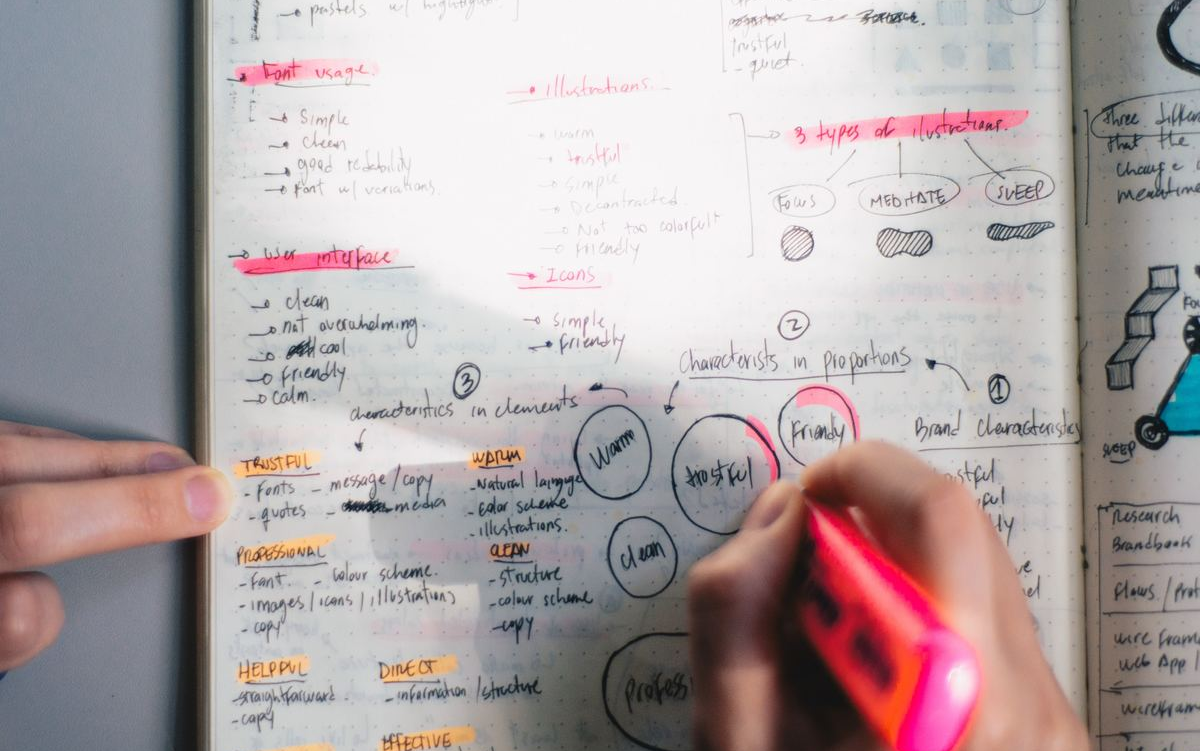 pastels w/
trustful
- quiet.
Font usage.
Simple
clean
good redability
Font w/ variations
Illustrations.
warm
trustful
simple
Decontracted.
Not too colorfult
Friendly
3 types of ilustrations.
Focus
MEDITATE
SLEEP
User interface
clean
not overwhelming.
cool
Friendly
calm.
Icons
simple
Friendly
2
Characterists in proportions
3
characteristics in elements
1
Brand characteristics
Warm
trustful
Friendly
clean
profess
TRUSTFUL
- Fonts - message/copy
- quotes - media
WARM
- Natural language
- Color scheme
- illustrations.
PROFESSIONAL
- Font. - colour scheme.
- images / icons / illustrations
- copy
CLEAN
- structure
- colour scheme
- copy
HELPFUL
- straightforward
- copy
DIRECT
- information / structure
EFFECTIVE
Three differ
that the
change
meantime
SLEEP
Research
Brandbook
Flows / Prot
wire frame
web App /
wirefram